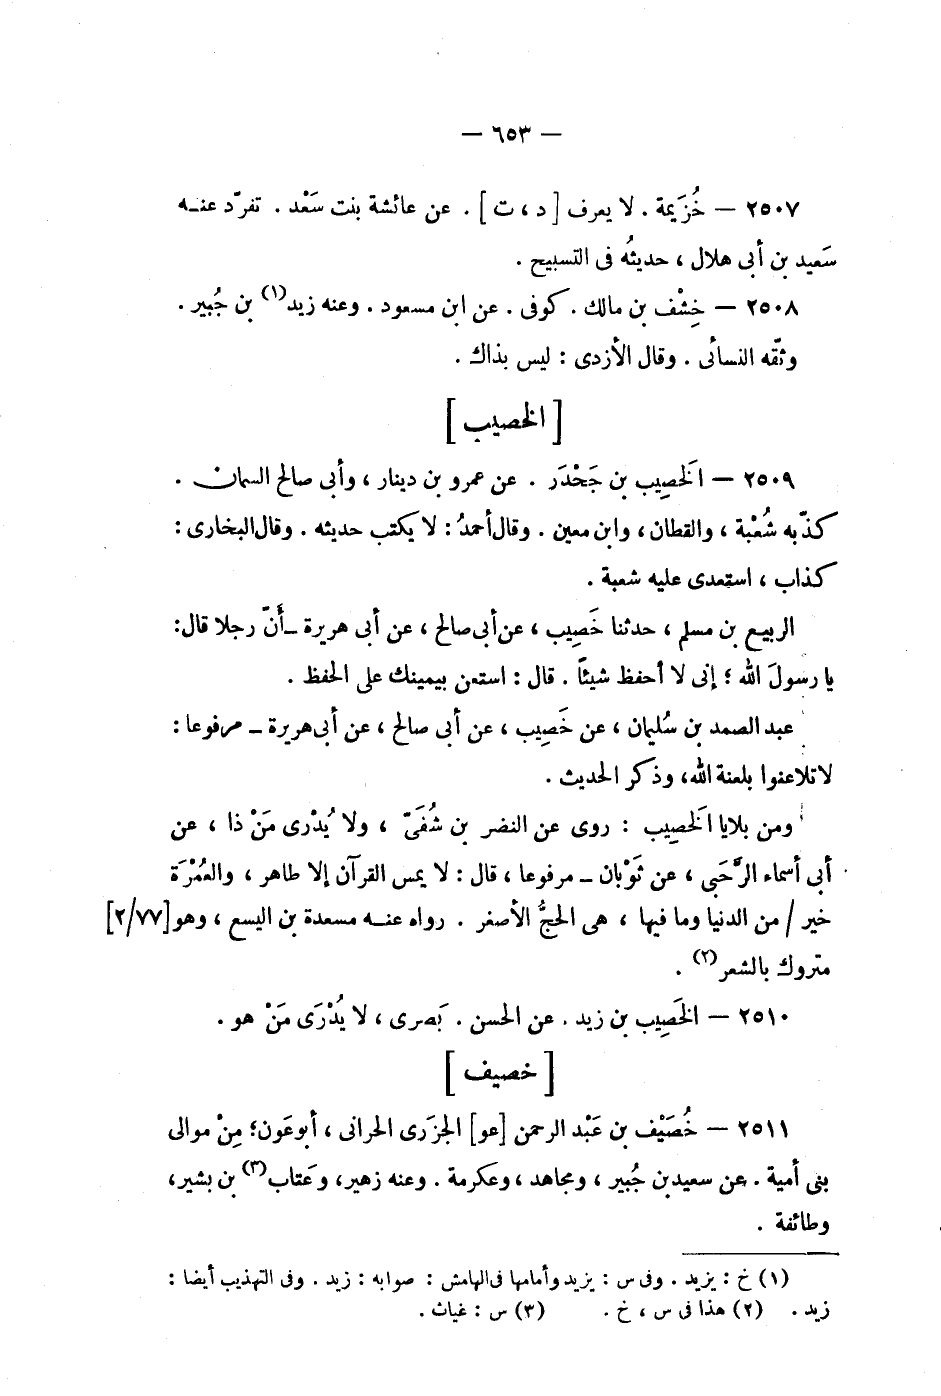 — ٦٥٣ —
٢٥٠٧ — خُزَيمة . لا يعرف [ د ، ت ] . عن عائشة بنت سَعْد . تفرّد عنـه
سَعيد بن أبى هلال ، حديثُه فى التسبيح .
٢٥٠٨ — خِشْف بن مالك . كوفى . عن ابن مسعود . وعنه زيد(١) بن جُبير .
وثّقه النسائى . وقال الأزدى : ليس بذاك .
[ الخصيب ]
٢٥٠٩ — الخَصِيب بن جَحْدَر . عن عمرو بن دينار ، وأبى صالح السمان .
كذّبه شُعْبة ، والقطان ، وابن معين . وقال أحمدُ : لا يكتب حديثه . وقال البخارى :
كذاب ، استعدى عليه شعبة .
الربيع بن مسلم ، حدثنا خَصِيب ، عن أبى صالح ، عن أبى هريرة ـ أنّ رجلا قال :
يا رسولَ الله ؛ إنى لا أحفظ شيئاً . قال : استعن بيمينك على الحفظ .
عبد الصمد بن سُليمان ، عن خَصِيب ، عن أبى صالح ، عن أبى هريرة ـ مرفوعا :
لا تلاعنوا بلعنة الله ، وذكر الحديث .
ومن بلايا الخَصِيب : روى عن النضر بن شُفَىّ ، ولا يُدْرى مَنْ ذا ، عن
أبى أسماء الرَّحَبى ، عن ثَوْبان ـ مرفوعا ، قال : لا يمس القرآن إلا طاهر ، والعُمْرَة
خير / من الدنيا وما فيها ، هى الحجُّ الأصغر . رواه عنـه مسعدة بن اليسع ، وهو [٢/٧٧]
متروك بالشعر(٢) .
٢٥١٠ — الخَصِيب بن زيد . عن الحسن . بَصرى ، لا يُدْرَى مَنْ هو .
[ خصيف ]
٢٥١١ — خُصَيْف بن عَبْد الرحمن [عو] الجزَرى الحرانى ، أبو عَون ؛ مِنْ موالى
بنى أمية . عن سعيد بن جُبير ، ومجاهد ، وعكرمة . وعنه زهير ، وعَتاب(٣) بن بشير ،
وطائفة .
(١) خ : يزيد . وفى س : يزيد وأمامها فى الهامش : صوابه : زيد . وفى التهذيب أيضا :
زيد . (٢) هذا فى س ، خ . (٣) س : غياث .